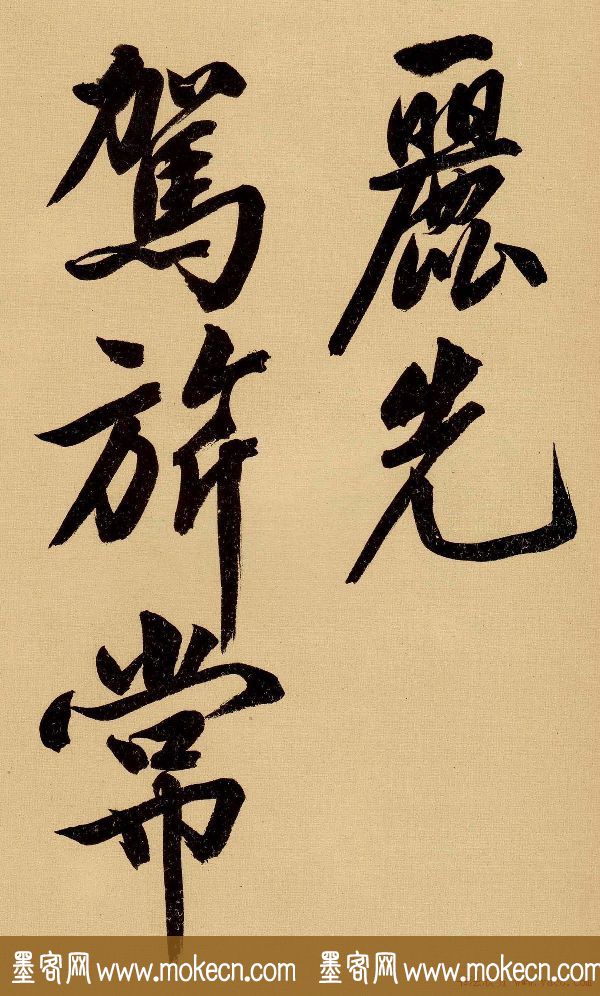 麗先
駕旂常
墨客网 www.mokecn.com 墨客网 www.mokecn.com